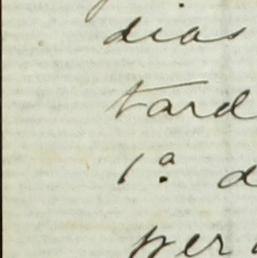 dias
tard
1ª d
per